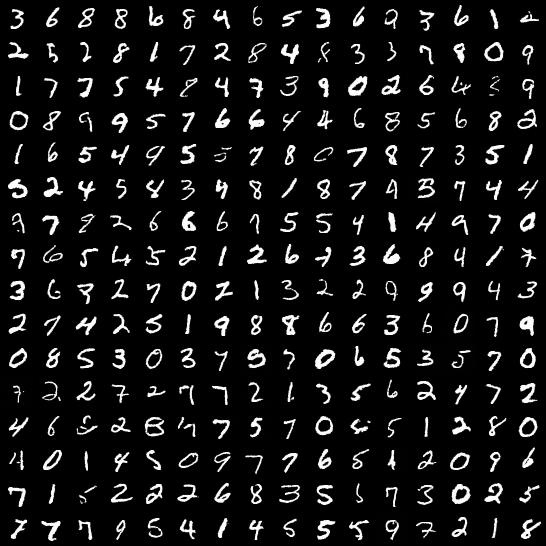 3 6 8 8 6 8 4 6 5 3 6 9 3 6 1 2
2 5 2 8 1 7 2 8 4 8 3 3 7 9 0 9
1 7 7 5 4 8 4 7 3 9 0 2 6 4 3 9
0 8 9 9 5 7 6 6 4 4 6 8 5 6 8 2
1 6 5 4 9 5 5 7 8 0 7 8 7 3 5 1
5 2 4 5 8 3 4 8 1 8 7 9 3 7 4 4
9 7 9 2 6 6 6 7 5 5 4 1 4 9 7 0
7 6 5 4 5 2 1 2 6 7 3 6 8 4 1 7
3 6 8 2 7 0 2 1 3 2 2 9 9 9 4 3
2 7 4 2 5 1 9 8 8 6 6 3 6 0 7 9
0 8 5 3 0 3 7 9 7 0 6 5 3 5 7 0
7 2 2 7 2 7 7 2 1 3 5 6 2 4 7 2
4 6 2 8 7 5 7 0 5 1 2 8 0
4 0 1 4 5 0 9 7 7 6 5 1 2 0 9 6
7 1 5 2 2 2 6 8 3 5 7 3 0 2 5
7 7 7 9 5 4 1 4 5 5 5 9 7 2 1 8